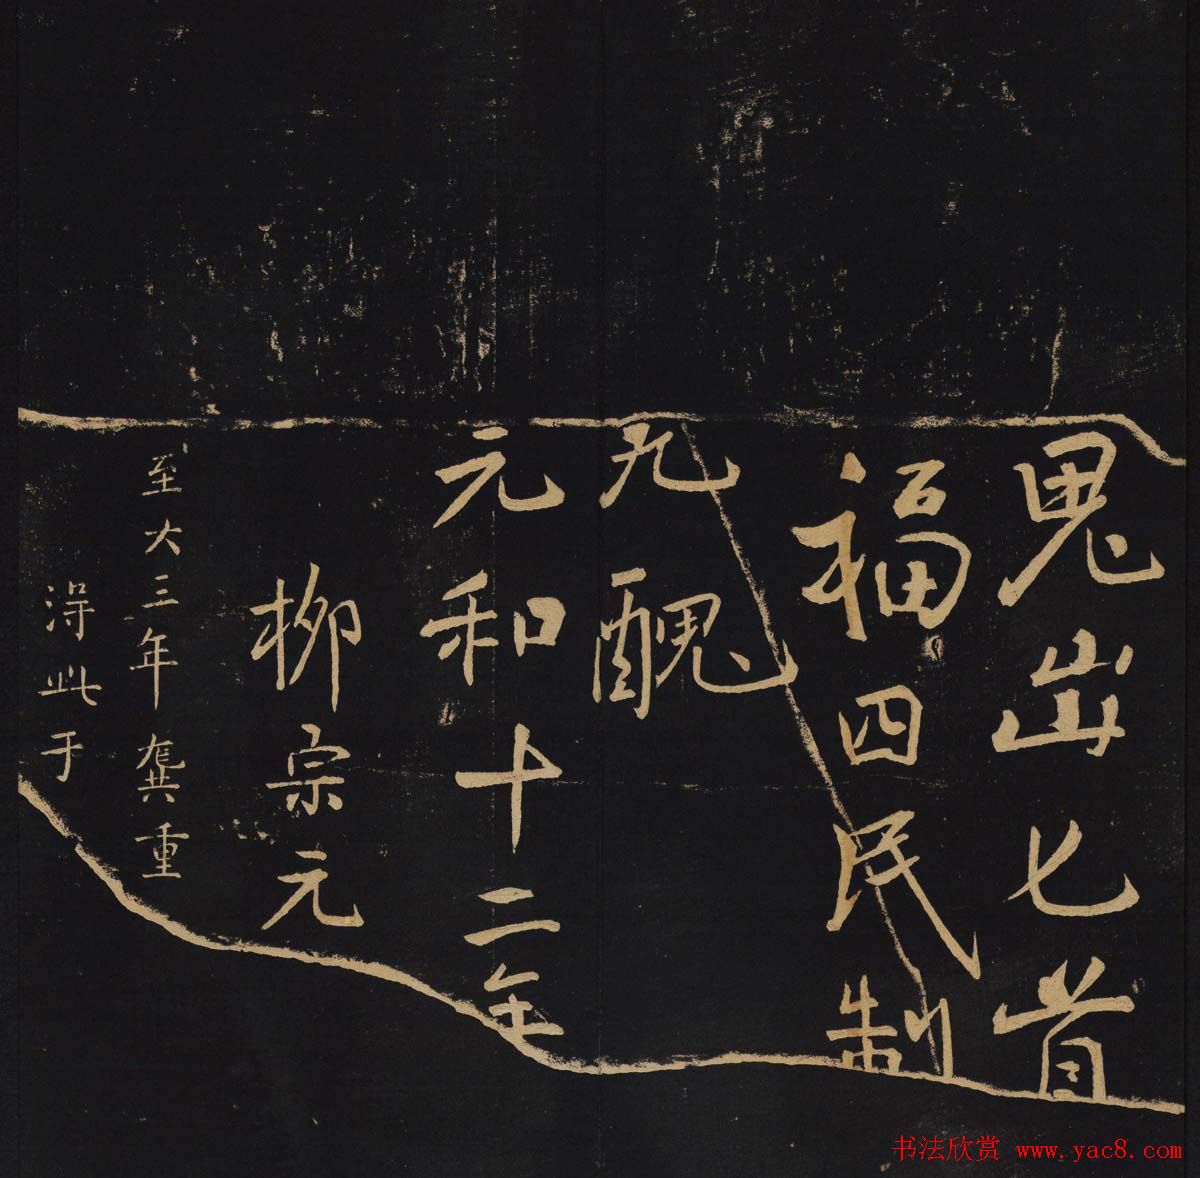 鬼出七首
福四民制
九醜
元和十二年
柳宗元
至大三年龔重
得此于
书法欣赏 www.yac8.com